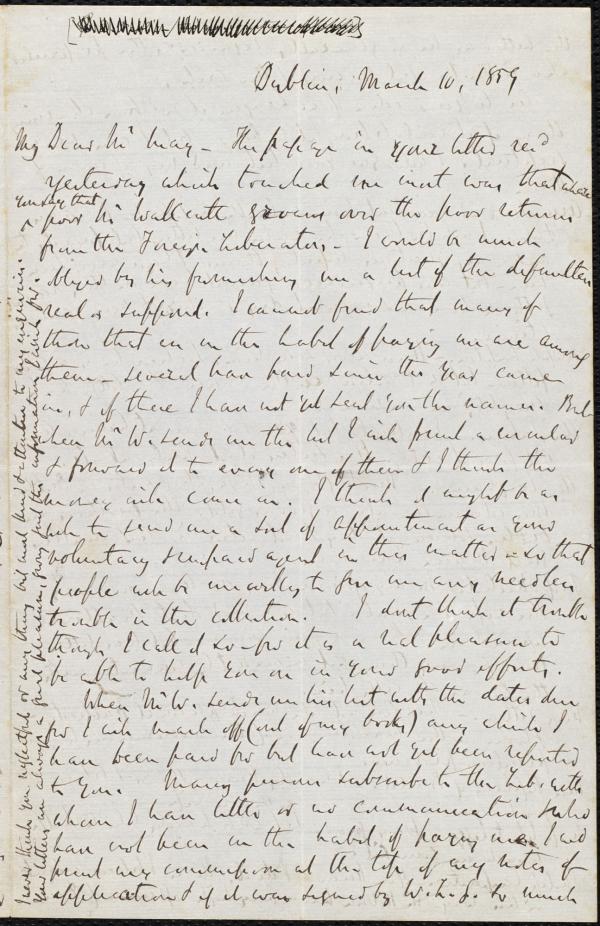 Dublin, March 10, 1859
My Dear Mr May - The passage in your letter recd
yesterday which touched me most was that where
you say that
poor Mr Wallcutt groans over the poor returns
from the Foreign Liberators - I would be much
obliged by his furnishing me a list of the defaulters
real or supposed. I cannot find that many of
those that are in the habit of paying me are among
them - several have paid since the year came
in, & of these I have not yet sent you the names. But
when Mr W. sends me the list I will print a circular
& forward it to every one of them & I think the
money will come in. I think it might be as
well to send me a sort of appointment as your
voluntary unpaid agent in this matter - so that
people will be unwilling to give me any needless
trouble in the collection. I don't think it trouble
though I call it so - for it is a real pleasure to
be able to help you on in your good efforts.
When Mr W. sends me his list with the dates due
for I will mark off (out of my books) any which I
have been paid for but have not yet been reported
to you. Many persons subscribe to the Lib. with
whom I have little or no communication & who
have not been in the habit of paying me. I will
print my commission at the top of my notes of
application & if it was signed by W.L.G. so much
I never think you neglectful or any thing but most kind & attentive to my enquiries.
Your letters are always a great pleasure, giving just the information I wish for.